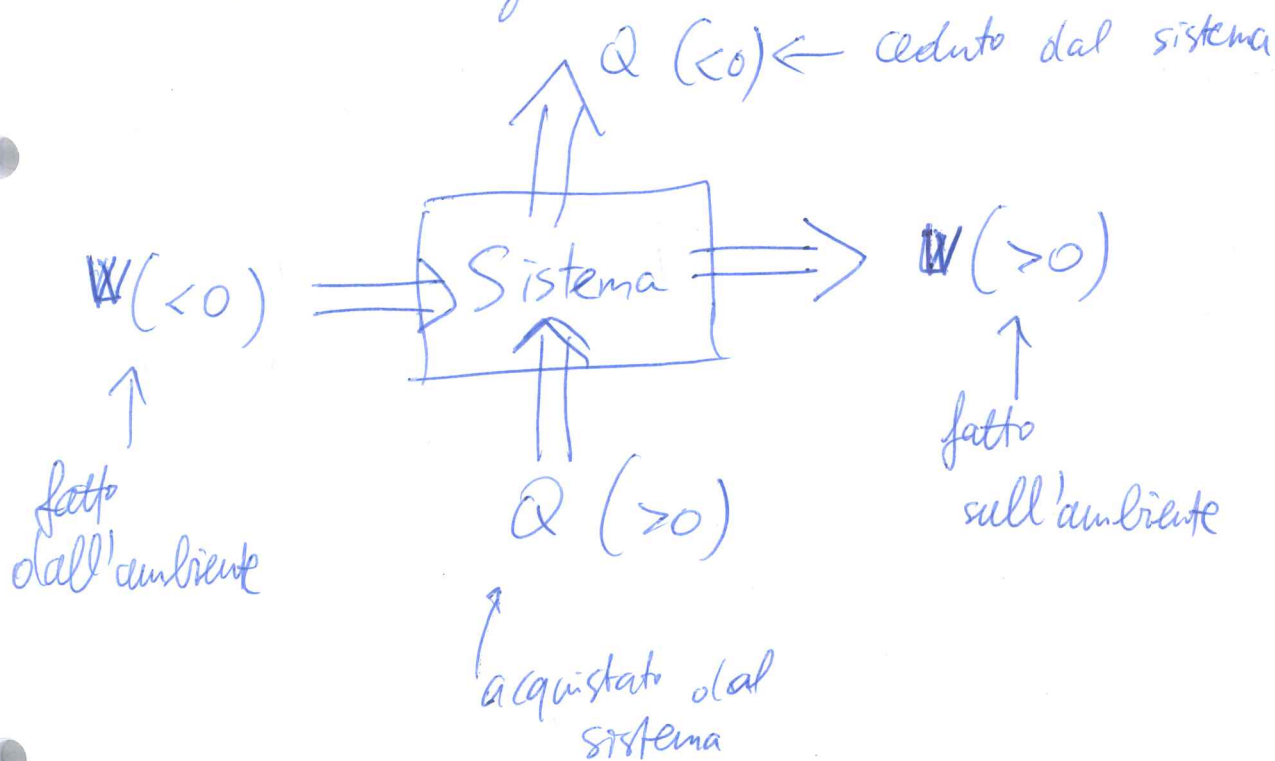 Q (<0) ← ceduto dal sistema
W (<0)
Sistema
W (>0)
fatto
dall'ambiente
Q (>0)
fatto
sull'ambiente
acquistato dal
sistema